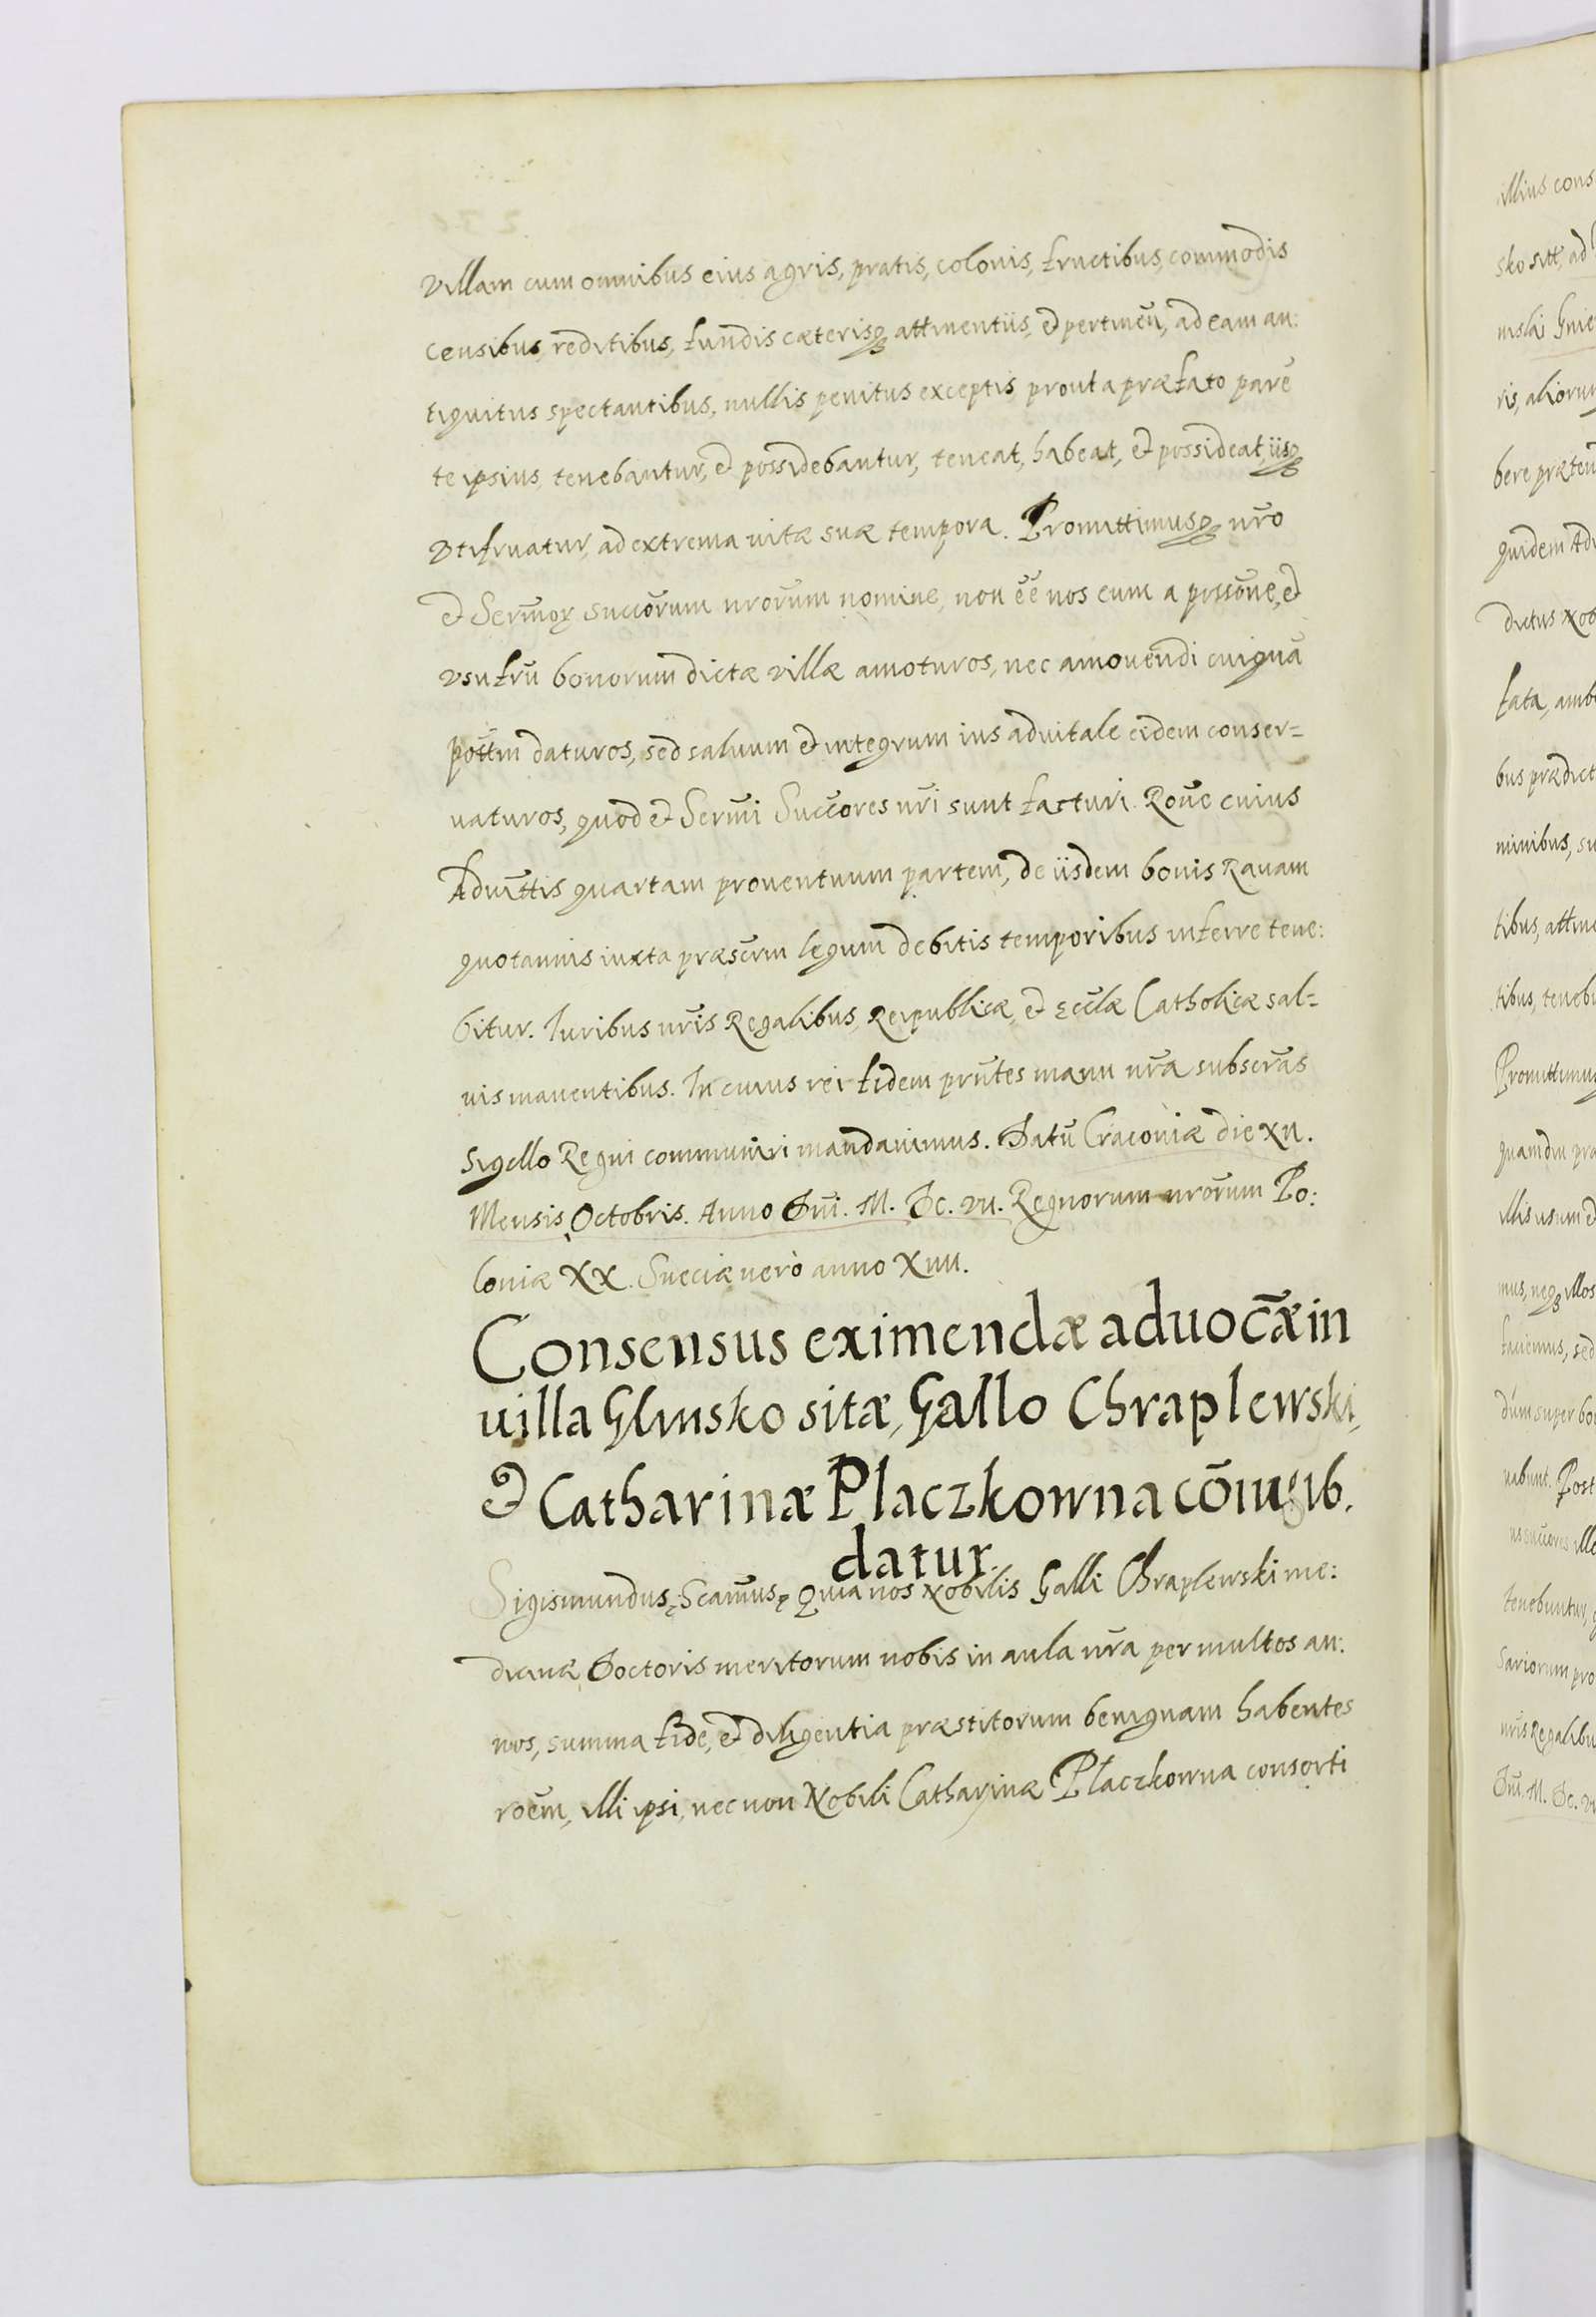 villam cum omnibus eius agris, pratis, colonis, fructibus, commodis
censibus, reditibus, fundis cæterisq attinentiis, et pertineñ, ad eam an:
tiquitus spectantibus, nullis penitus exceptis prout a præfato parē
te ipsius, tenebantur, et possidebantur, teneat, habeat, et possideat, iisq
vtifruatur, ad extrema uitæ suæ tempora. Promittimusq nr̃o
et Serm̃oꝝ Succõrum nrõrum nomine, non ẽẽ nos eum a possõne, et
vsufrũ bonorum dictæ villæ amoturos, nec amouendi cuiquã
põttm daturos, sed saluum et integrum ius aduitale eidem conser=
uaturos, quod et Serm̃i Succ̃ores nr̃i sunt facturi. Rõne cuius
Aduĩttis quartam prouentuum partem, de iisdem bonis Rauam
quotannis iuxta præscrm̃ legum debitis temporibus inferre tene:
bitur. Iuribus nr̃is Regalibus, Reipublicæ, et Eccl̃æ Catholicæ sal=
uis manentibus. In cuius rei fidem prñtes manu nr̃a subscr̃as
sigillo Regni communiri mandauimus. Datũ Cracouiæ die XII.
Mensis Octobris. Anno Dñi. M. Dc. VII. Regnorum nrõrum Po:
loniæ XX. Sueciæ uerò anno XIIII.
Consensus eximendæ aduoc̃æ in
uilla Glinsko sitæ, Gallo Chraplewski,
et Catharinæ Placzkowna cõiugib.
datur.
Sigismundus, Scam̃us, Quia nos Nobilis Galli Chraplewski me:
dicinæ Doctoris meritorum nobis in aula nr̃a per multos an:
nos, summa fide, et diligentia præstitorum benignam habentes
roẽm, illi ipsi, nec non Nobili Catharinæ Placzkowna consorti
illius cons
sko sitt, ad
ris, aliorum
bere præten
quidem Adu
dictus Nob
fata, amb
bus prædict
minibus, su
tibus, attine
tibus, tenebu
Promittimus
quamdiu pra
illis usum et
mus, neq illos
fauemus, sed
dum super bo
uabunt. Post
tenebuntur,
sariorum pro
nr̃is Regalibu
Dñi. M. Dc. VI